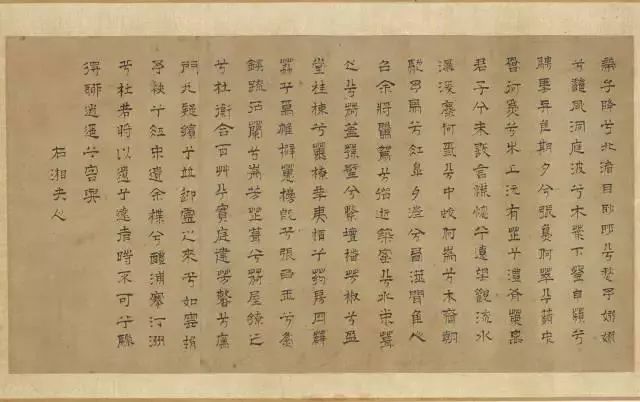 帝子降兮北渚目眇眇兮愁予嫋嫋
兮秋風洞庭波兮木葉下登白薠兮
騁望與佳期兮夕張鳥何萃兮蘋中
罾何為兮木上沅有芷兮澧有蘭思
君子兮未敢言慌惚兮遠望觀流水
潺湲麋何為兮中蛟何為兮水裔朝
馳予馬兮江皋夕濟兮西澨聞佳人
召余將騰駕兮偕逝築室兮水中葺
之兮荷蓋蓀壁兮紫壇播芳椒兮盈
堂桂棟兮蘭橑辛夷楣兮藥房罔薜
荔兮為帷擗蕙櫋既兮張白玉兮為
鎮疏石蘭兮為芳芷葺兮荷屋繚之
兮杜衡合百草兮實庭建芳馨兮廡
門九疑繽兮並迎靈之來兮如雲捐
予袂兮江中遺余褋兮醴浦搴汀洲
兮杜若時以遺兮遠者時不可兮驟
得聊逍遙兮容與
右湘夫人